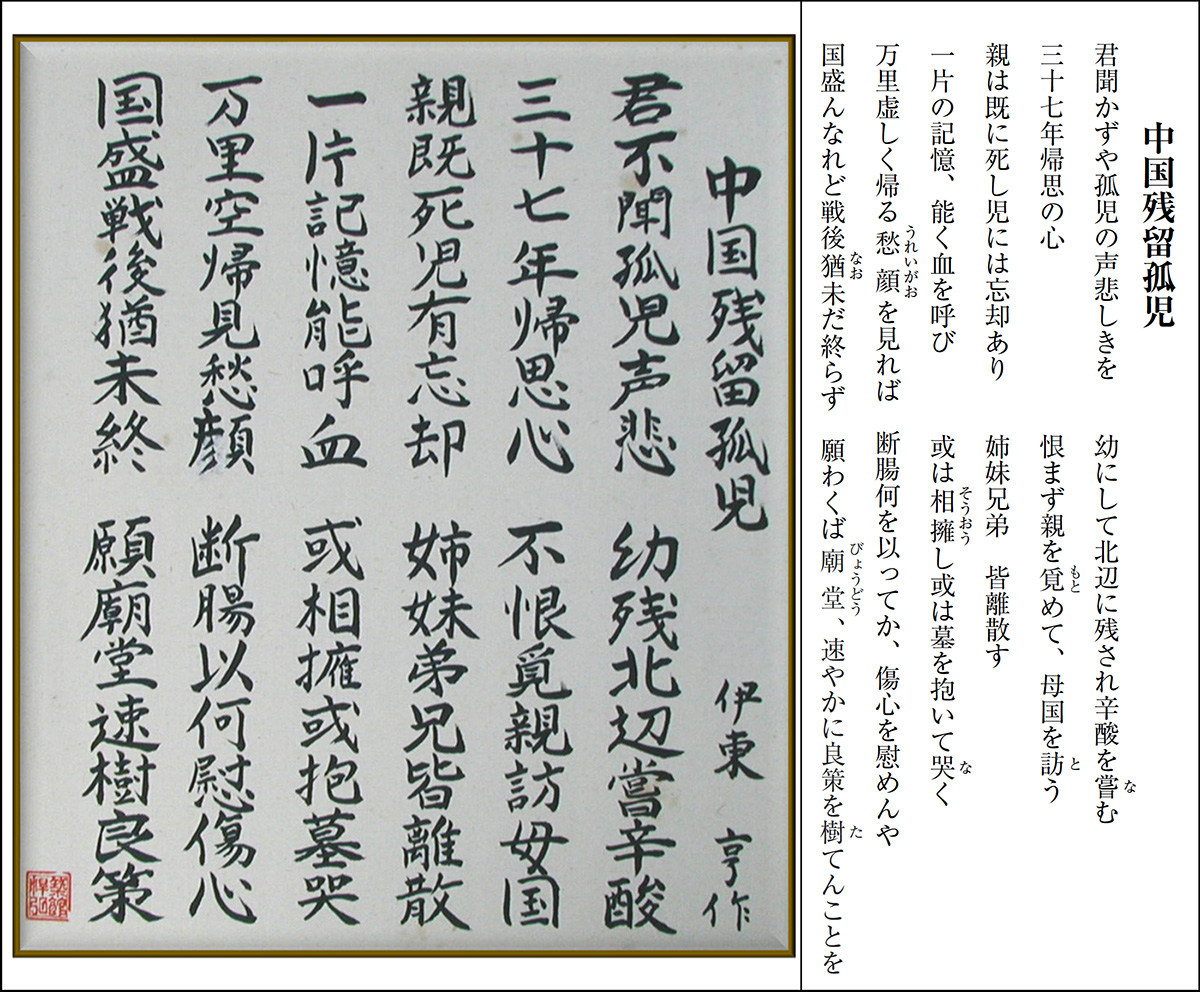 中国残留孤児
君聞かずや孤児の声悲しきを　幼にして北辺に残され辛酸を嘗む
な
三十七年帰思の心　恨まず親を覓めて、母国を訪う
もと　と
親は既に死し児には忘却あり　姉妹兄弟　皆離散す
一片の記憶、能く血を呼び　或は相擁し或は墓を抱いて哭く
そうおう　な
万里虚しく帰る愁顔を見れば　断腸何を以ってか、傷心を慰めんや
うれいがお
国盛んなれど戦後猶未だ終らず　願わくば廟堂、速やかに良策を樹てんことを
なお　びょうどう　た
中国残留孤児　伊東　亨作
君不聞孤児声悲　幼残北辺嘗辛酸
三十七年帰思心　不恨覓親訪母国
親既死児有忘却　姉妹弟兄皆離散
一片記憶能呼血　或相擁或抱墓哭
万里空帰見愁顔　断腸以何慰傷心
国盛戦後猶未終　願廟堂速樹良策